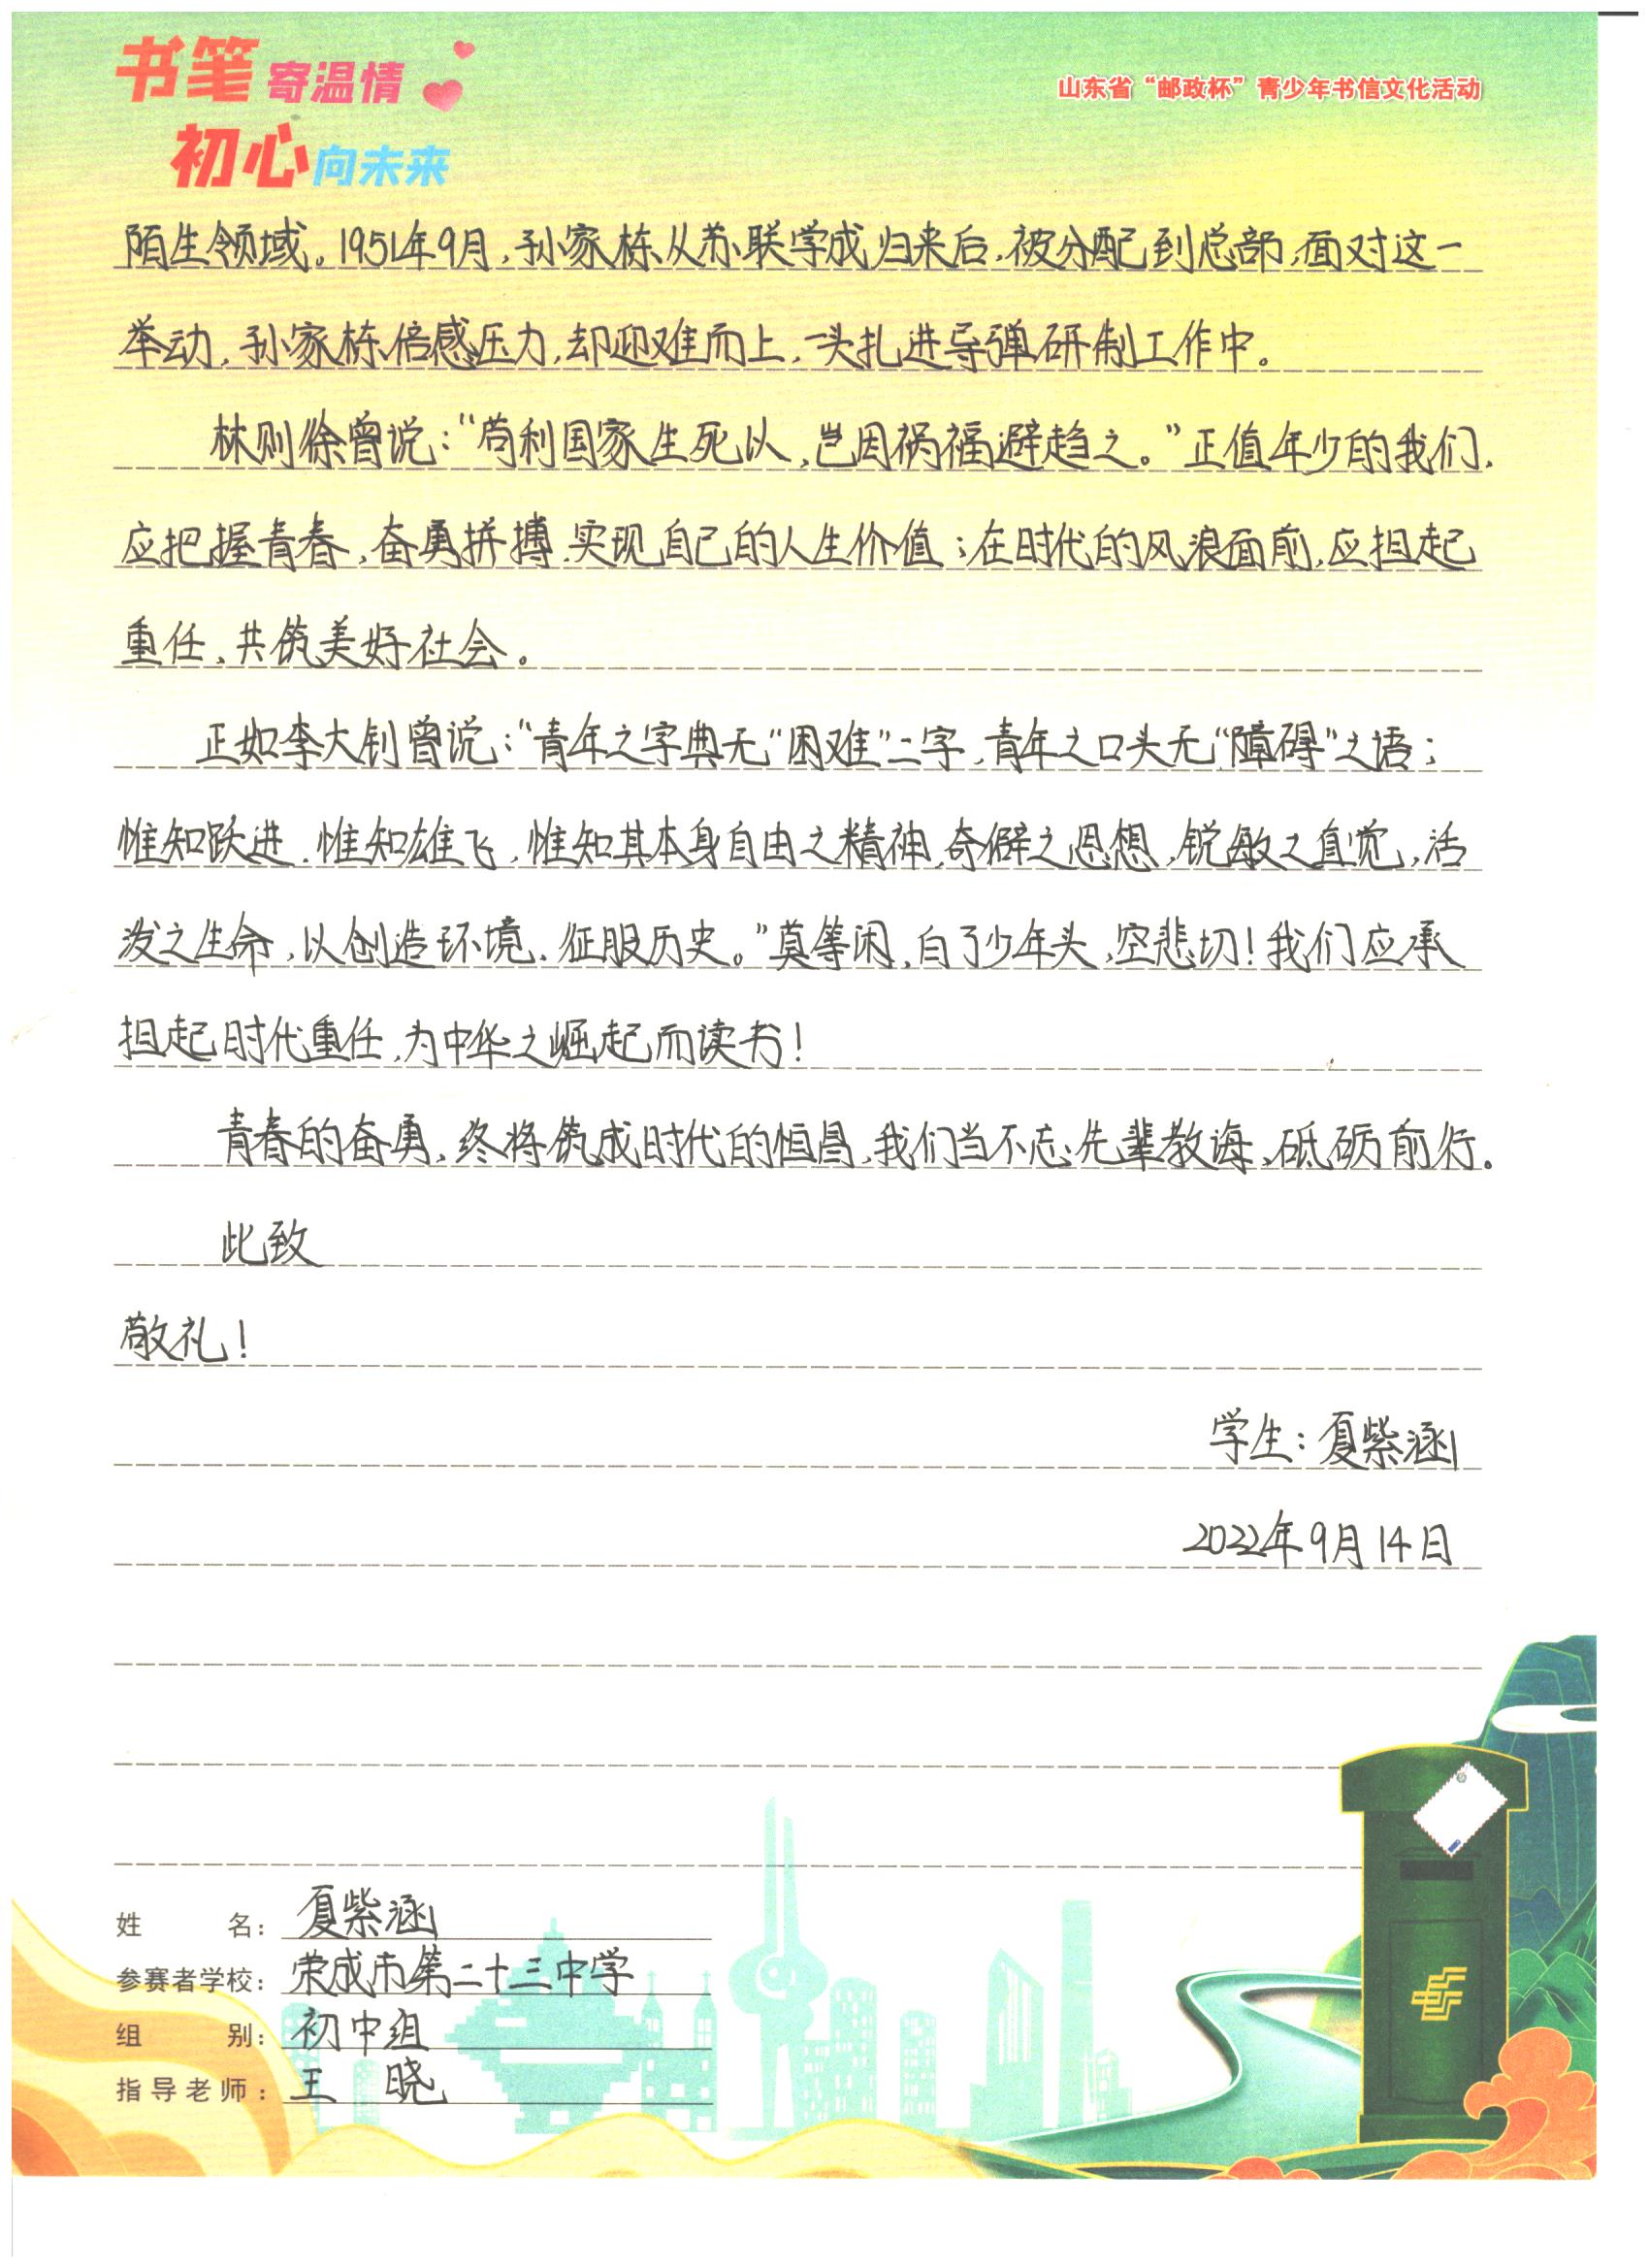 书笔寄温情
初心向未来
山东省“邮政杯”青少年书信文化活动
陌生领域。1951年9月,孙家栋从苏联学成归来后,被分配到总部,面对这一
举动,孙家栋倍感压力,却迎难而上,一头扎进导弹研制工作中。
林则徐曾说:“苟利国家生死以,岂因祸福避趋之。”正值年少的我们,
应把握青春,奋勇拼搏,实现自己的人生价值;在时代的风浪面前,应担起
重任,共筑美好社会。
正如李大钊曾说:“青年之字典无“困难”二字,青年之口头无“障碍”之语;
惟知跃进,惟知雄飞,惟知其本身自由之精神,奇僻之思想,锐敏之直觉,活
泼之生命,以创造环境,征服历史。”莫等闲,白了少年头,空悲切!我们应承
担起时代重任,为中华之崛起而读书!
青春的奋勇,终将筑成时代的恒昌,我们当不忘先辈教诲,砥砺前行。
此致
敬礼!
学生:夏紫涵
2022年9月14日
姓名:夏紫涵
参赛者学校:荣成市第二十三中学
组别:初中组
指导老师:王 晓